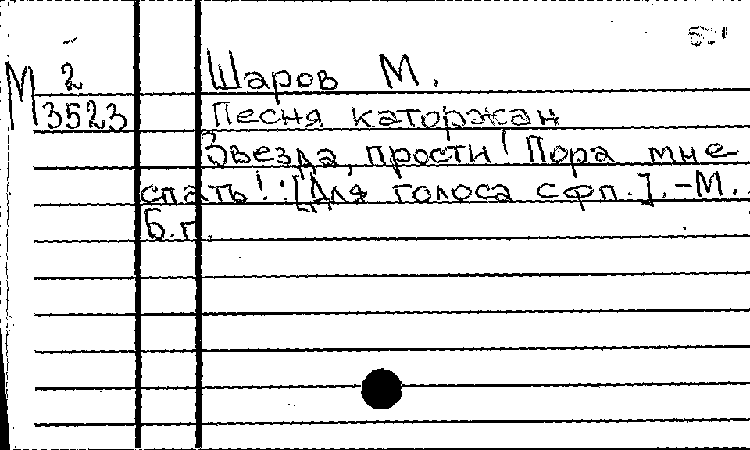 М 2
3523
Шаров М.
Песня каторжан
Звезда, прости! Пора мне
спать!: [Для голоса с фп.]. -М.,
Б.г.